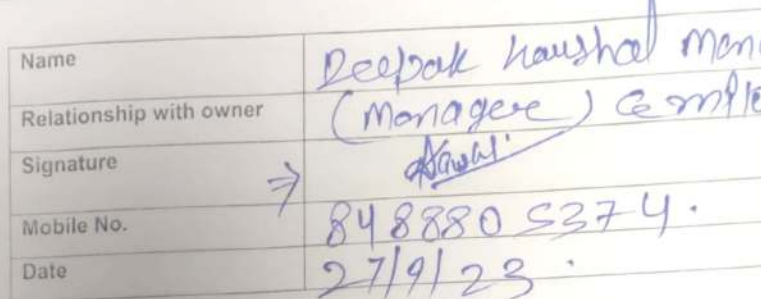 Name Deepak Kaushal Man
Relationship with owner (Managere) Emple
Signature
Mobile No. 8488805374.
Date 27/9/23.